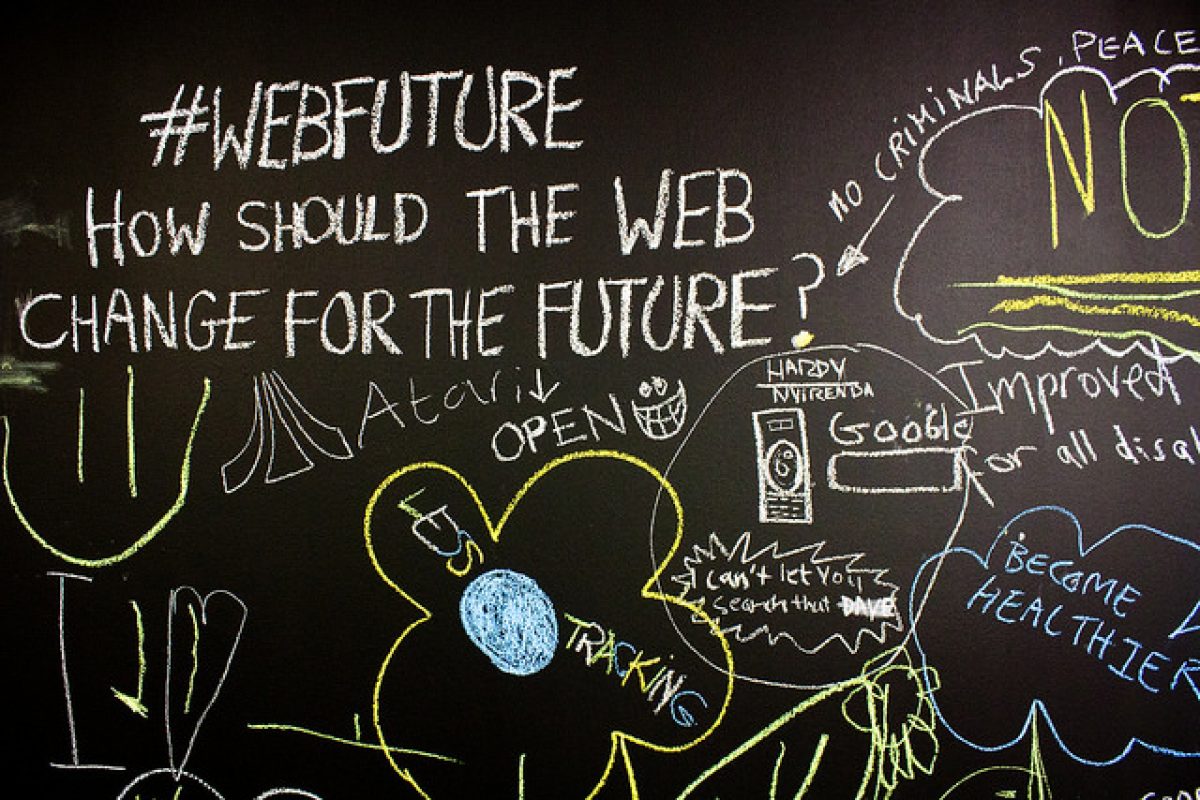 #WEBFUTURE
HOW SHOULD THE WEB
CHANGE FOR THE FUTURE?
NO CRIMINALS, PEACE
NO
Atari
OPEN
HARDY
NYIRENDA
Google
Improved
for all disa
I can't let you
search that DAVE
LESS
TRACKING
BECOME
HEALTHIER
I